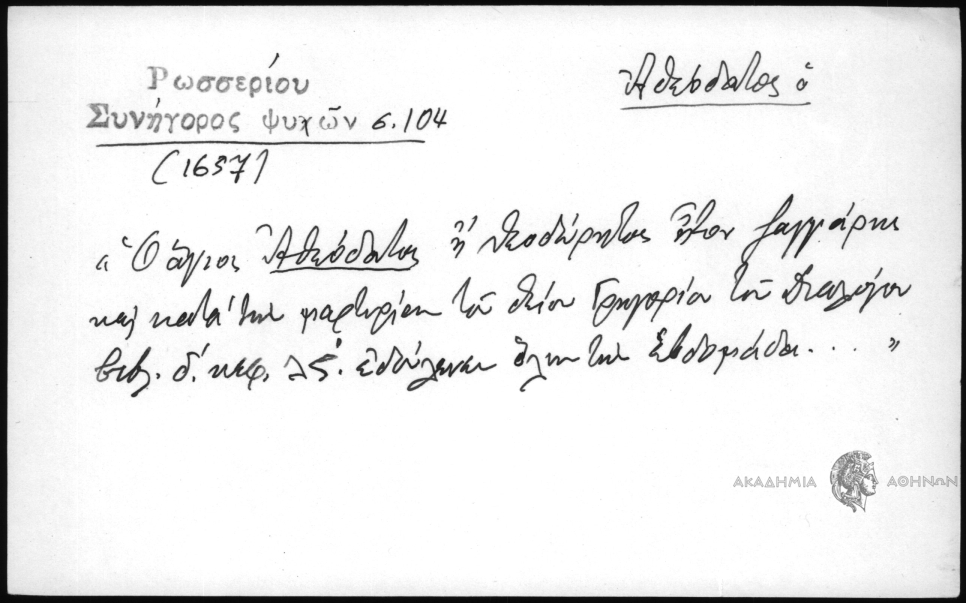 Ρωσσερίου
Συνήγορος ψυχῶν σ. 104
(1637)
Ἀθεόδατος ὁ
"Ὁ ἅγιος Ἀθεόδατος ἢ θεοδώρητος ἦτον
καὶ κατὰ τὴν μαρτυρίαν τοῦ θείου Γρηγορίου τοῦ Διαλόγου
βιβλ. δ΄. κεφ. λς΄. ἐδούλευεν ὅλην τὴν ἑβδομάδα... "
ΑΚΑΔΗΜΙΑ ΑΘΗΝΩΝ